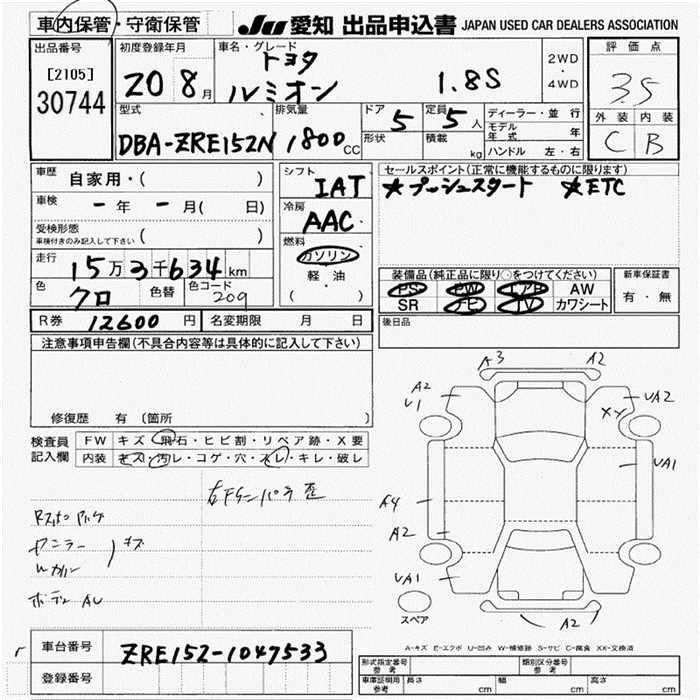 車内保管・守衛保管
JU 愛知 出品申込書 JAPAN USED CAR DEALERS ASSOCIATION
出品番号
[2105]
30744
初度登録年月
20 8月
車名・グレード
トヨタ
ルミオン 1.8S
2WD
・
4WD
評価点
3.5
外装 内装
C B
型式
DBA-ZRE152N
排気量
1800CC
ドア 5
形状
定員 5人
積載 kg
ディーラー・並行
モデル年式 年
ハンドル 左・右
車歴 自家用・( )
車検 ー年 ー月( 日)
受検形態
車検付きのみ記入して下さい ( )
走行 15万3千634km
色 クロ 色替 色コード 209
シフト
IAT
冷房
AAC
燃料
ガソリン
軽・油
( )
セールスポイント(正常に機能するものに限ります)
★プッシュスタート ★ETC
装備品(純正品に限り○をつけてください)
PS PW エアB AW
SR ナビ TV カワシート
新車保証書
有・無
R券 12600円 名変期限 月 日
後日品
注意事項申告欄(不具合内容等は具体的に記入して下さい)
修復歴 有 (箇所 )
検査員
記入欄
FW キズ・飛石・ヒビ割・リペア跡・X要
内装 キズ・汚レ・コゲ・穴・スレ・キレ・破レ
A3 A2
A2 VA2
V1 XV
VA1
A4
A2
VA1
A2
スペア
キズ
A-キズ E-エクボ U-凹み W-補修跡 S-サビ C-腐食 XX-交換済
車台番号 ZRE152-1047533
登録番号
形式指定番号
参考
類別区分番号
参考
車庫証明用
参考
長さ cm 幅 cm 高さ cm